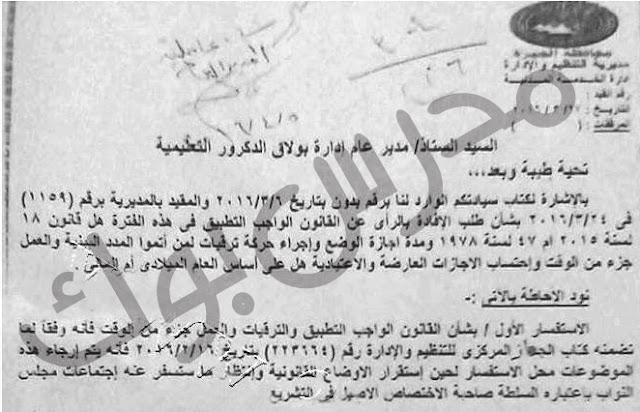 محافظة الجيزة
مديرية التنظيم والإدارة
إدارة الخدمة المدنية
رقم القيد
التاريخ : ٢٠١٦/٣/٢٧
المرفقات : ( )
السيد الستاذ/ مدير عام إدارة بولاق الدكرور التعليمية
تحية طيبة وبعد...
بالإشارة لكتاب سيادتكم الوارد لنا برقم بدون بتاريخ ٢٠١٦/٣/٦ والمقيد بالمديرية برقم (١١٥٩)
فى ٢٠١٦/٣/٢٤ بشأن طلب الإفادة بالرأى عن القانون الواجب التطبيق فى هذه الفترة هل قانون ١٨
لسنة ٢٠١٥ ام ٤٧ لسنة ١٩٧٨ ومدة اجازة الوضع وإجراء حركة ترقيات لمن أتموا المدد البينية والعمل
جزء من الوقت وإحتساب الاجازات العارضة والاعتيادية هل على أساس العام الميلادى أم المالى .
نود الاحاطة بالاتى :-
الاستفسار الأول / بشأن القانون الواجب التطبيق والترقيات والعمل جزء من الوقت فأنه وفقاً لما
تضمنه كتاب الجهاز المركزى للتنظيم والإدارة رقم (٢٢٣٦٦٤) بتاريخ ٢٠١٦/٢/١٦ فأنه يتم إرجاء هذه
الموضوعات محل الاستفسار لحين إستقرار الاوضاع القانونية وإنتظار ما ستسفر عنه إجتماعات مجلس
النواب بإعتباره السلطة صاحبة الاختصاص الاصيل فى التشريع
مدرس بوك